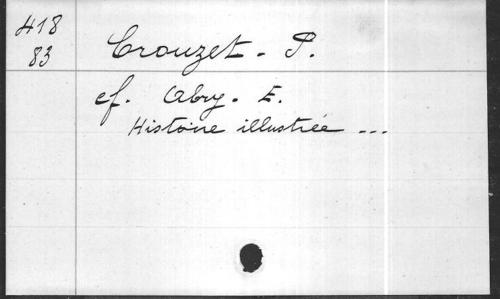 418
83
Crouzet - P.
cf. Abry - E.
Histoire illustrée ...